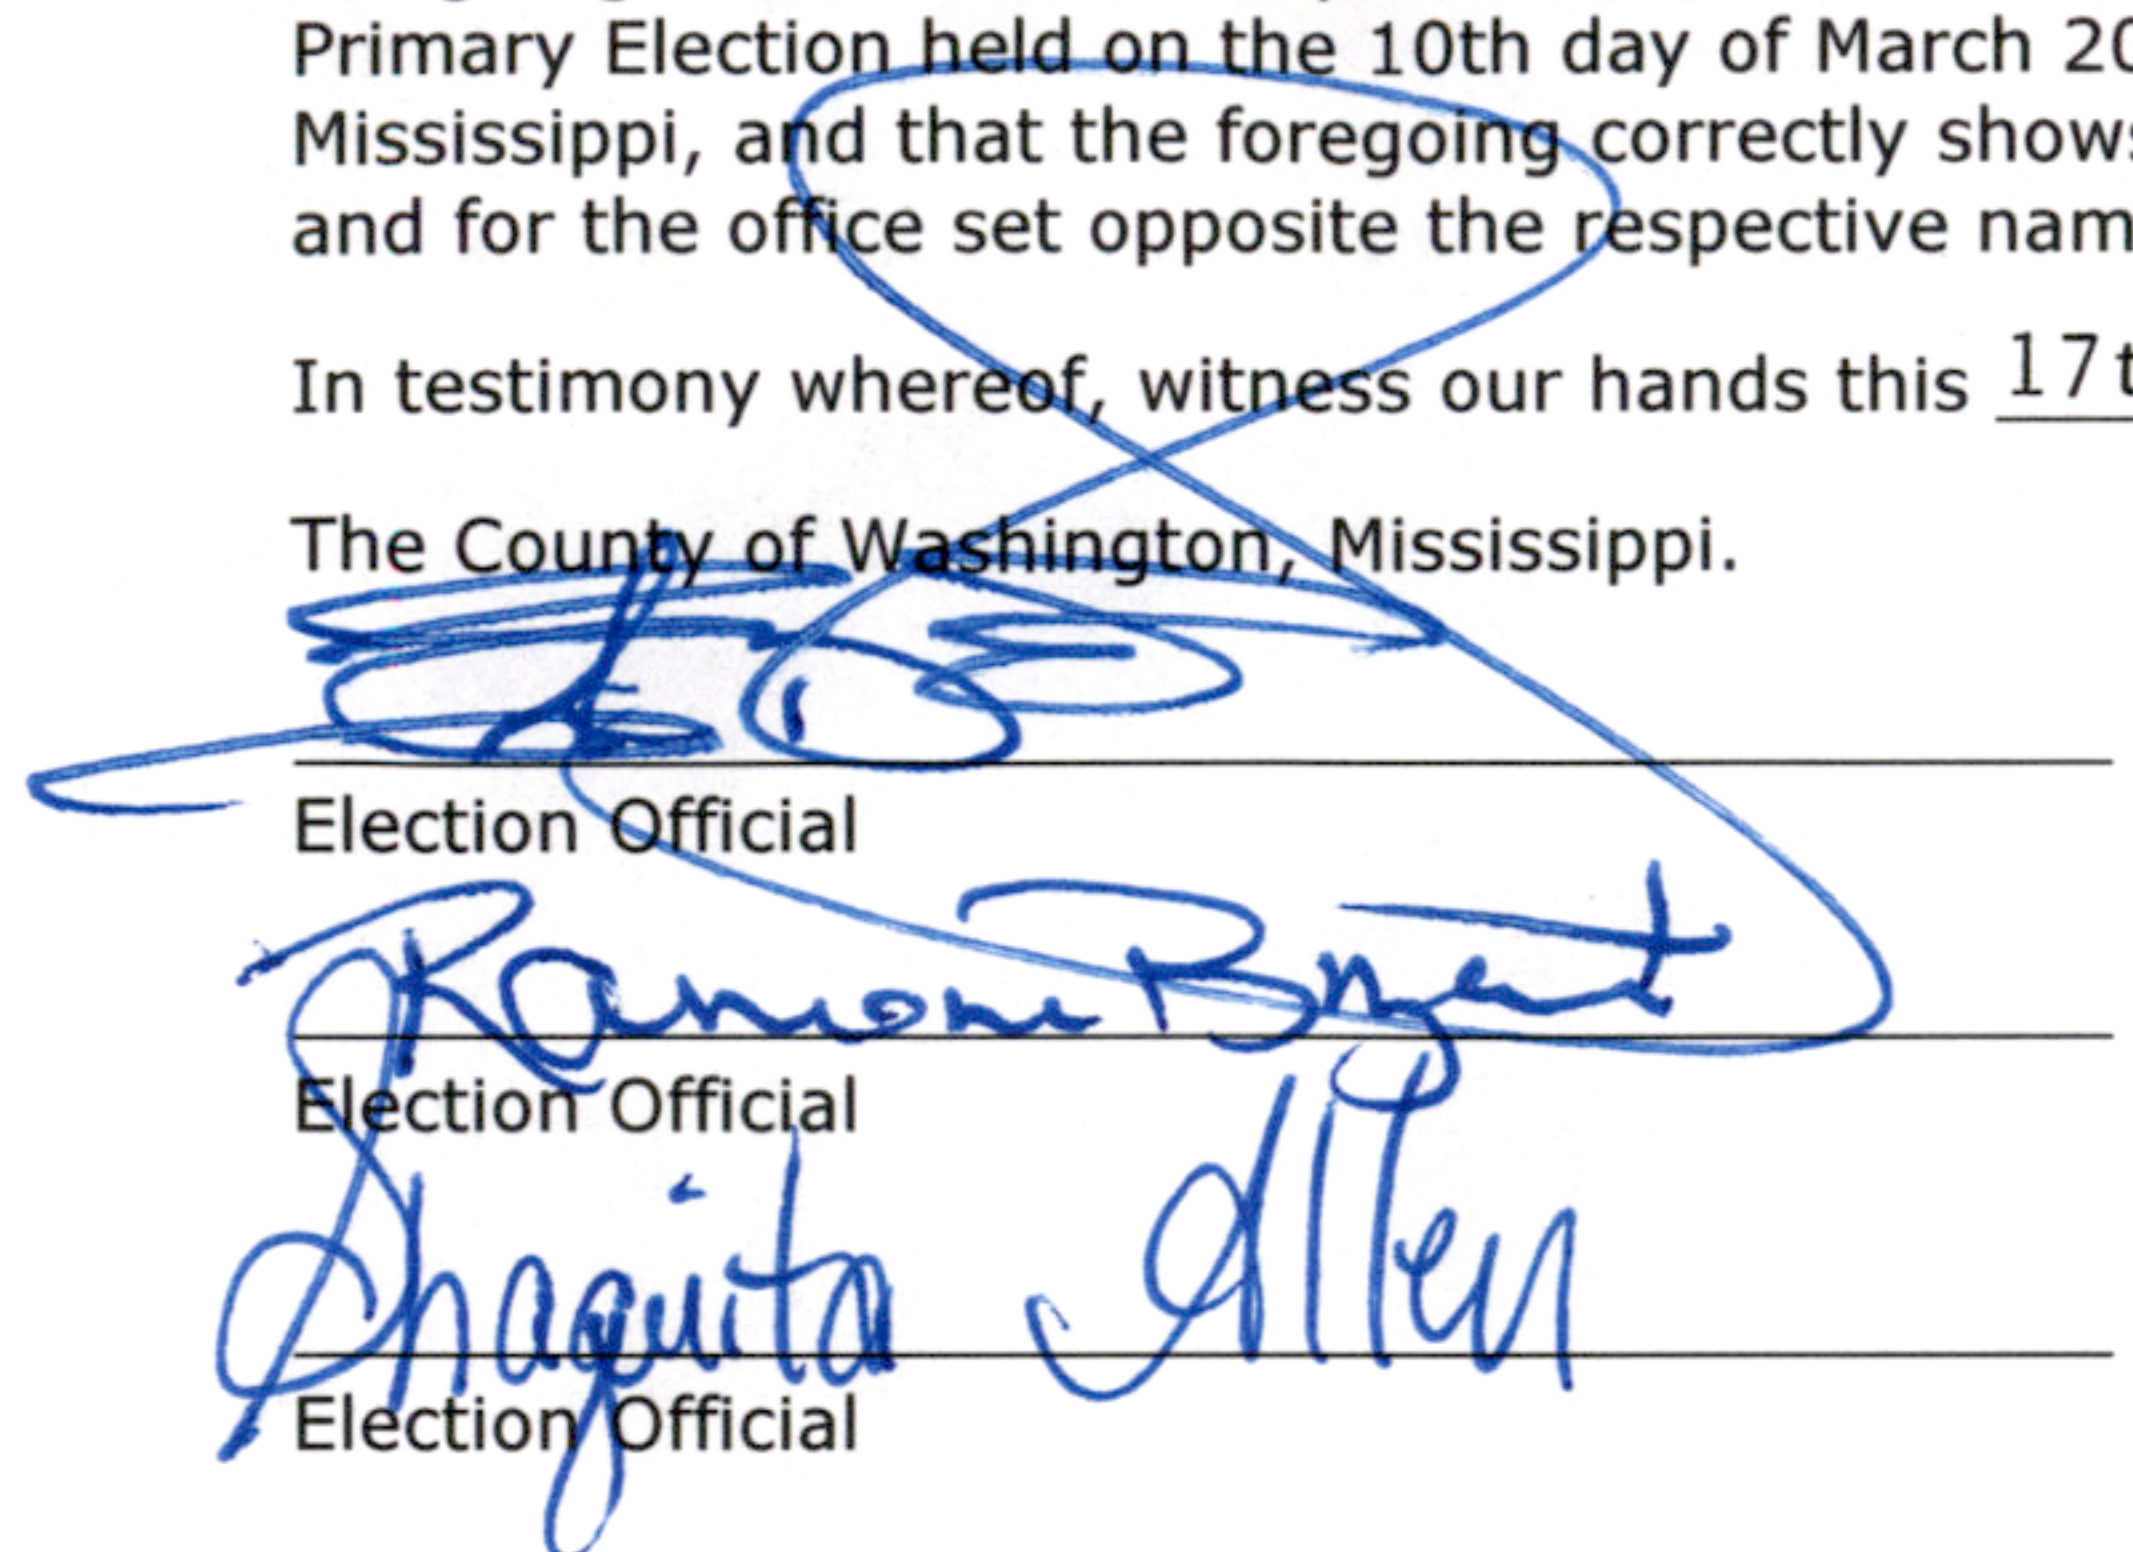 Primary Election held on the 10th day of March 20
Mississippi, and that the foregoing correctly shows
and for the office set opposite the respective nam
In testimony whereof, witness our hands this 17t
The County of Washington, Mississippi.
Election Official
Ramone Bryant
Election Official
Shaquita Allen
Election Official